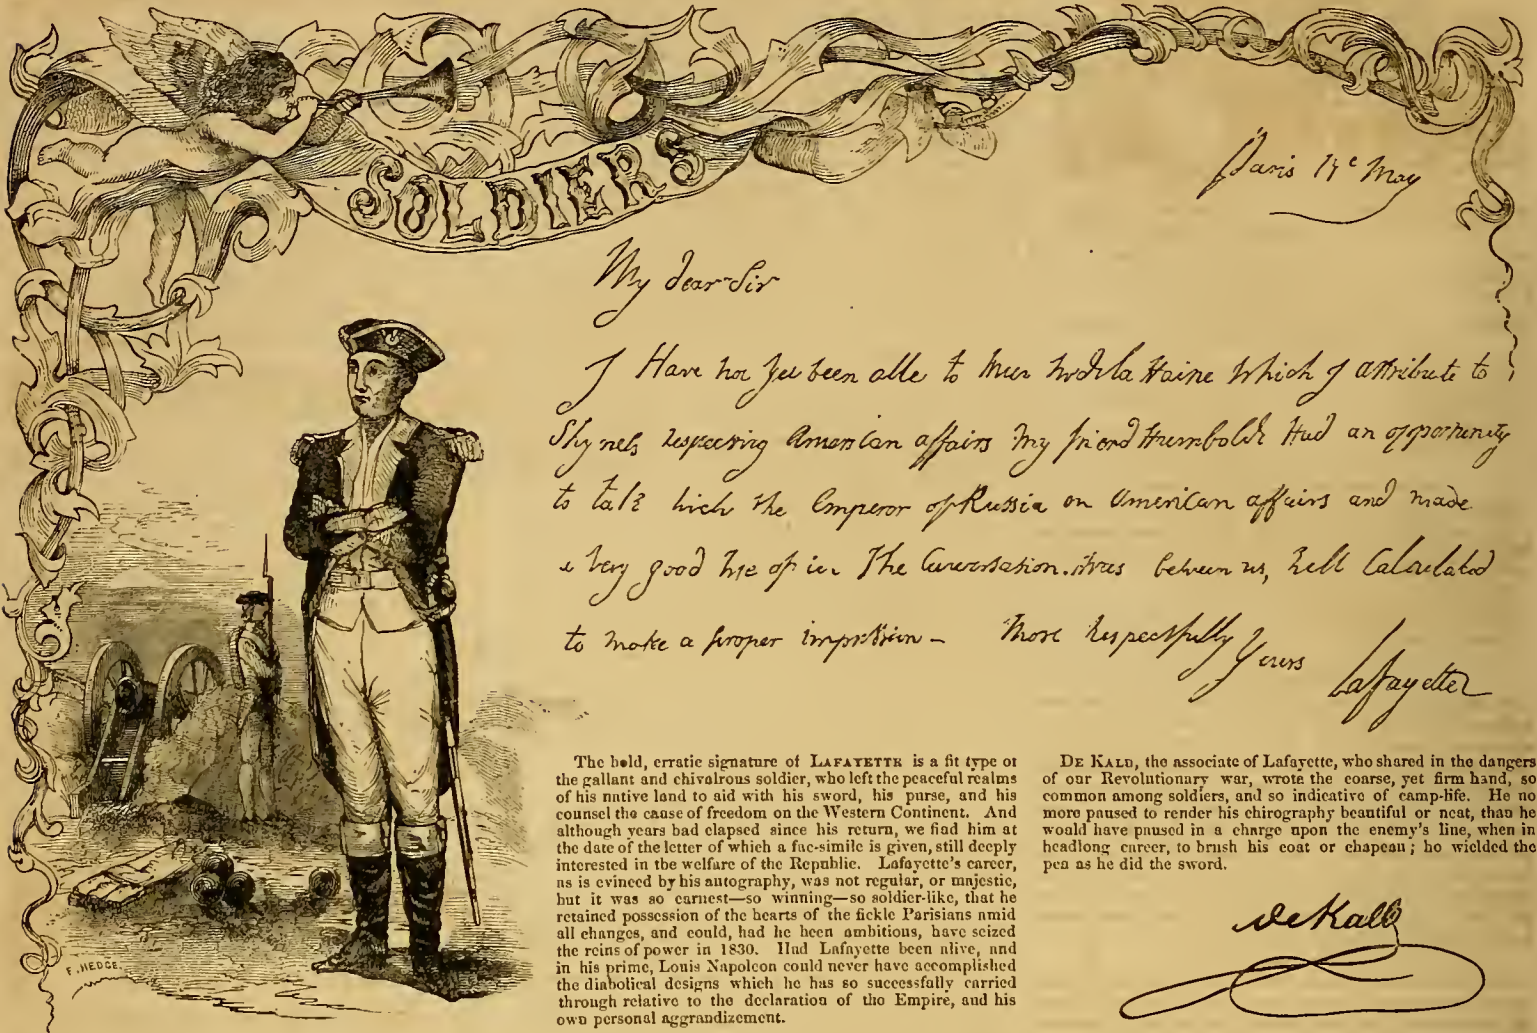 SOLDIERS
Paris May
My dear Sir
I Have not yet been able to la Haine Which I attribute to
Shyness respecting American affairs My friend Humboldt Had an opportunity
to talk with the Emperor of Russia on American affairs and made
a very good use of it. The Conversation was between us, well Calculated
to make a proper impression – Most Respectfully
Yours
Lafayette
The bold, erratic signature of LAFAYETTE is a fit type of
the gallant and chivalrous soldier, who left the peaceful realms
of his native land to aid with his sword, his purse, and his
counsel the cause of freedom on the Western Continent. And
although years had elapsed since his return, we find him at
the date of the letter of which a fac-simile is given, still deeply
interested in the welfare of the Republic. Lafayette's career,
as is evinced by his autography, was not regular, or majestic,
but it was so earnest—so winning—so soldier-like, that he
retained possession of the hearts of the fickle Parisians amid
all changes, and could, had he been ambitious, have seized
the reins of power in 1830. Had Lafayette been alive, and
in his prime, Louis Napoleon could never have accomplished
the diabolical designs which he has so successfully carried
through relative to the declaration of the Empire, and his
own personal aggrandizement.
DE KALB, the associate of Lafayette, who shared in the dangers
of our Revolutionary war, wrote the coarse, yet firm hand, so
common among soldiers, and so indicative of camp-life. He no
more paused to render his chirography beautiful or neat, than he
would have paused in a charge upon the enemy's line, when in
headlong career, to brush his coat or chapeau; he wielded the
pen as he did the sword.
DeKalb
F. HEDGE.